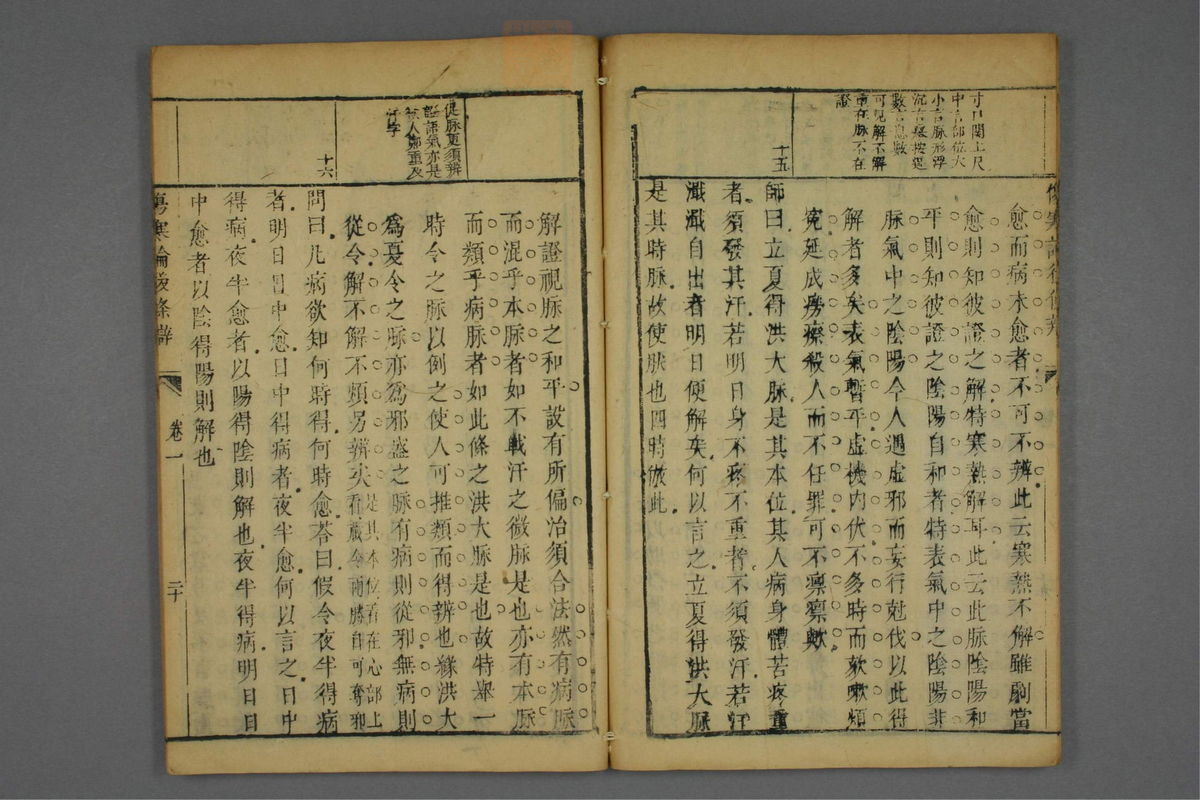 寸口關上尺
中言部位大
小言脉形浮
沉言舉按遲
數言息數
可見解不解
重在脉不在
證
十五
愈而病本愈者不可不辨此云寒熱不解雖劇當
愈則知彼證之解特寒熱解耳此云此脈陰陽和
平則知彼證之陰陽自和者特表氣中之陰陽非
脉氣中之陰陽今人遇虛邪而妄行尅伐以此得
解者多矣表氣暫平虛機内伏不多時而欬嗽煩
寃延成癆瘵殺人而不任罪可不凜凜歟
師曰立夏得洪大脉是其本位其人病身體苦疼重
者須發其汗若明日身不疼不重者不須發汗若汗
濈濈自出者明日便解矣何以言之立夏得洪大脉
是其時脉故使然也四時倣此
傷寒論後條辨
促脉更須辨
證語氣亦是
教人鄭重及
汗字
十六
解證視脉之和平設有所偏治須合法然有病脉
而混乎本脉者如不戰汗之微脉是也亦有本脉
而類乎病脉者如此條之洪大脉是也故特舉一
時令之脉以例之使人可推類而得辨也緣洪大
爲夏令之脉亦爲邪盛之脉有病則從邪無病則
從令解不解不煩另辨矣是其本位看在心部上
看藏令兩勝自可奪邪
問曰凡病欲知何時得何時愈荅曰假令夜半得病
者明日日中愈日中得病者夜半愈何以言之日中
得病夜半愈者以陽得陰則解也夜半得病明日日
中愈者以陰得陽則解也
傷寒論後條辯
卷一
二十